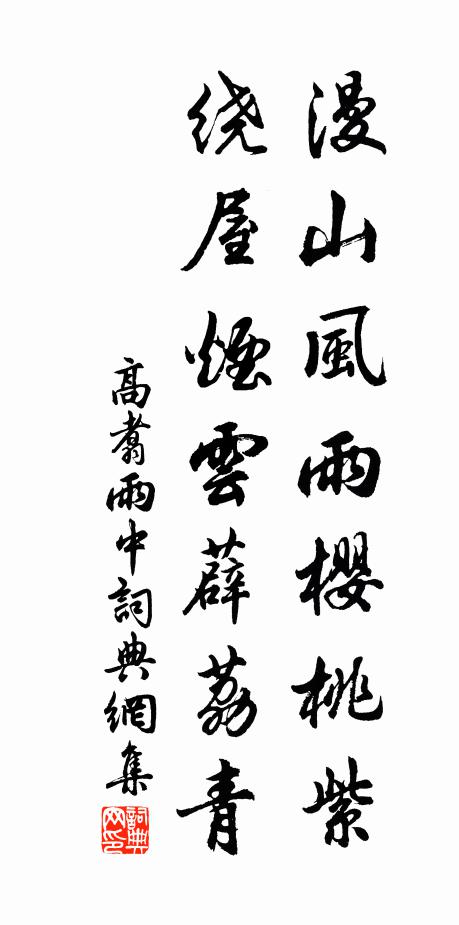 漫山風雨櫻桃紫
绕屋煙雲薜荔青
高翥雨中詞典網集
詞典
网印